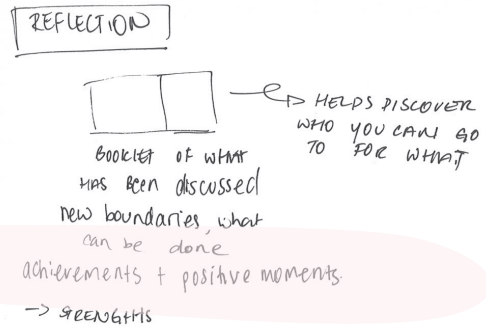 REFLECTION
HELPS DISCOVER
WHO YOU CAN GO
TO FOR WHAT
BOOKLET OF WHAT
HAS BEEN discussed
new boundaries, what
can be done
achievements + positive moments.
→ STRENGTHS